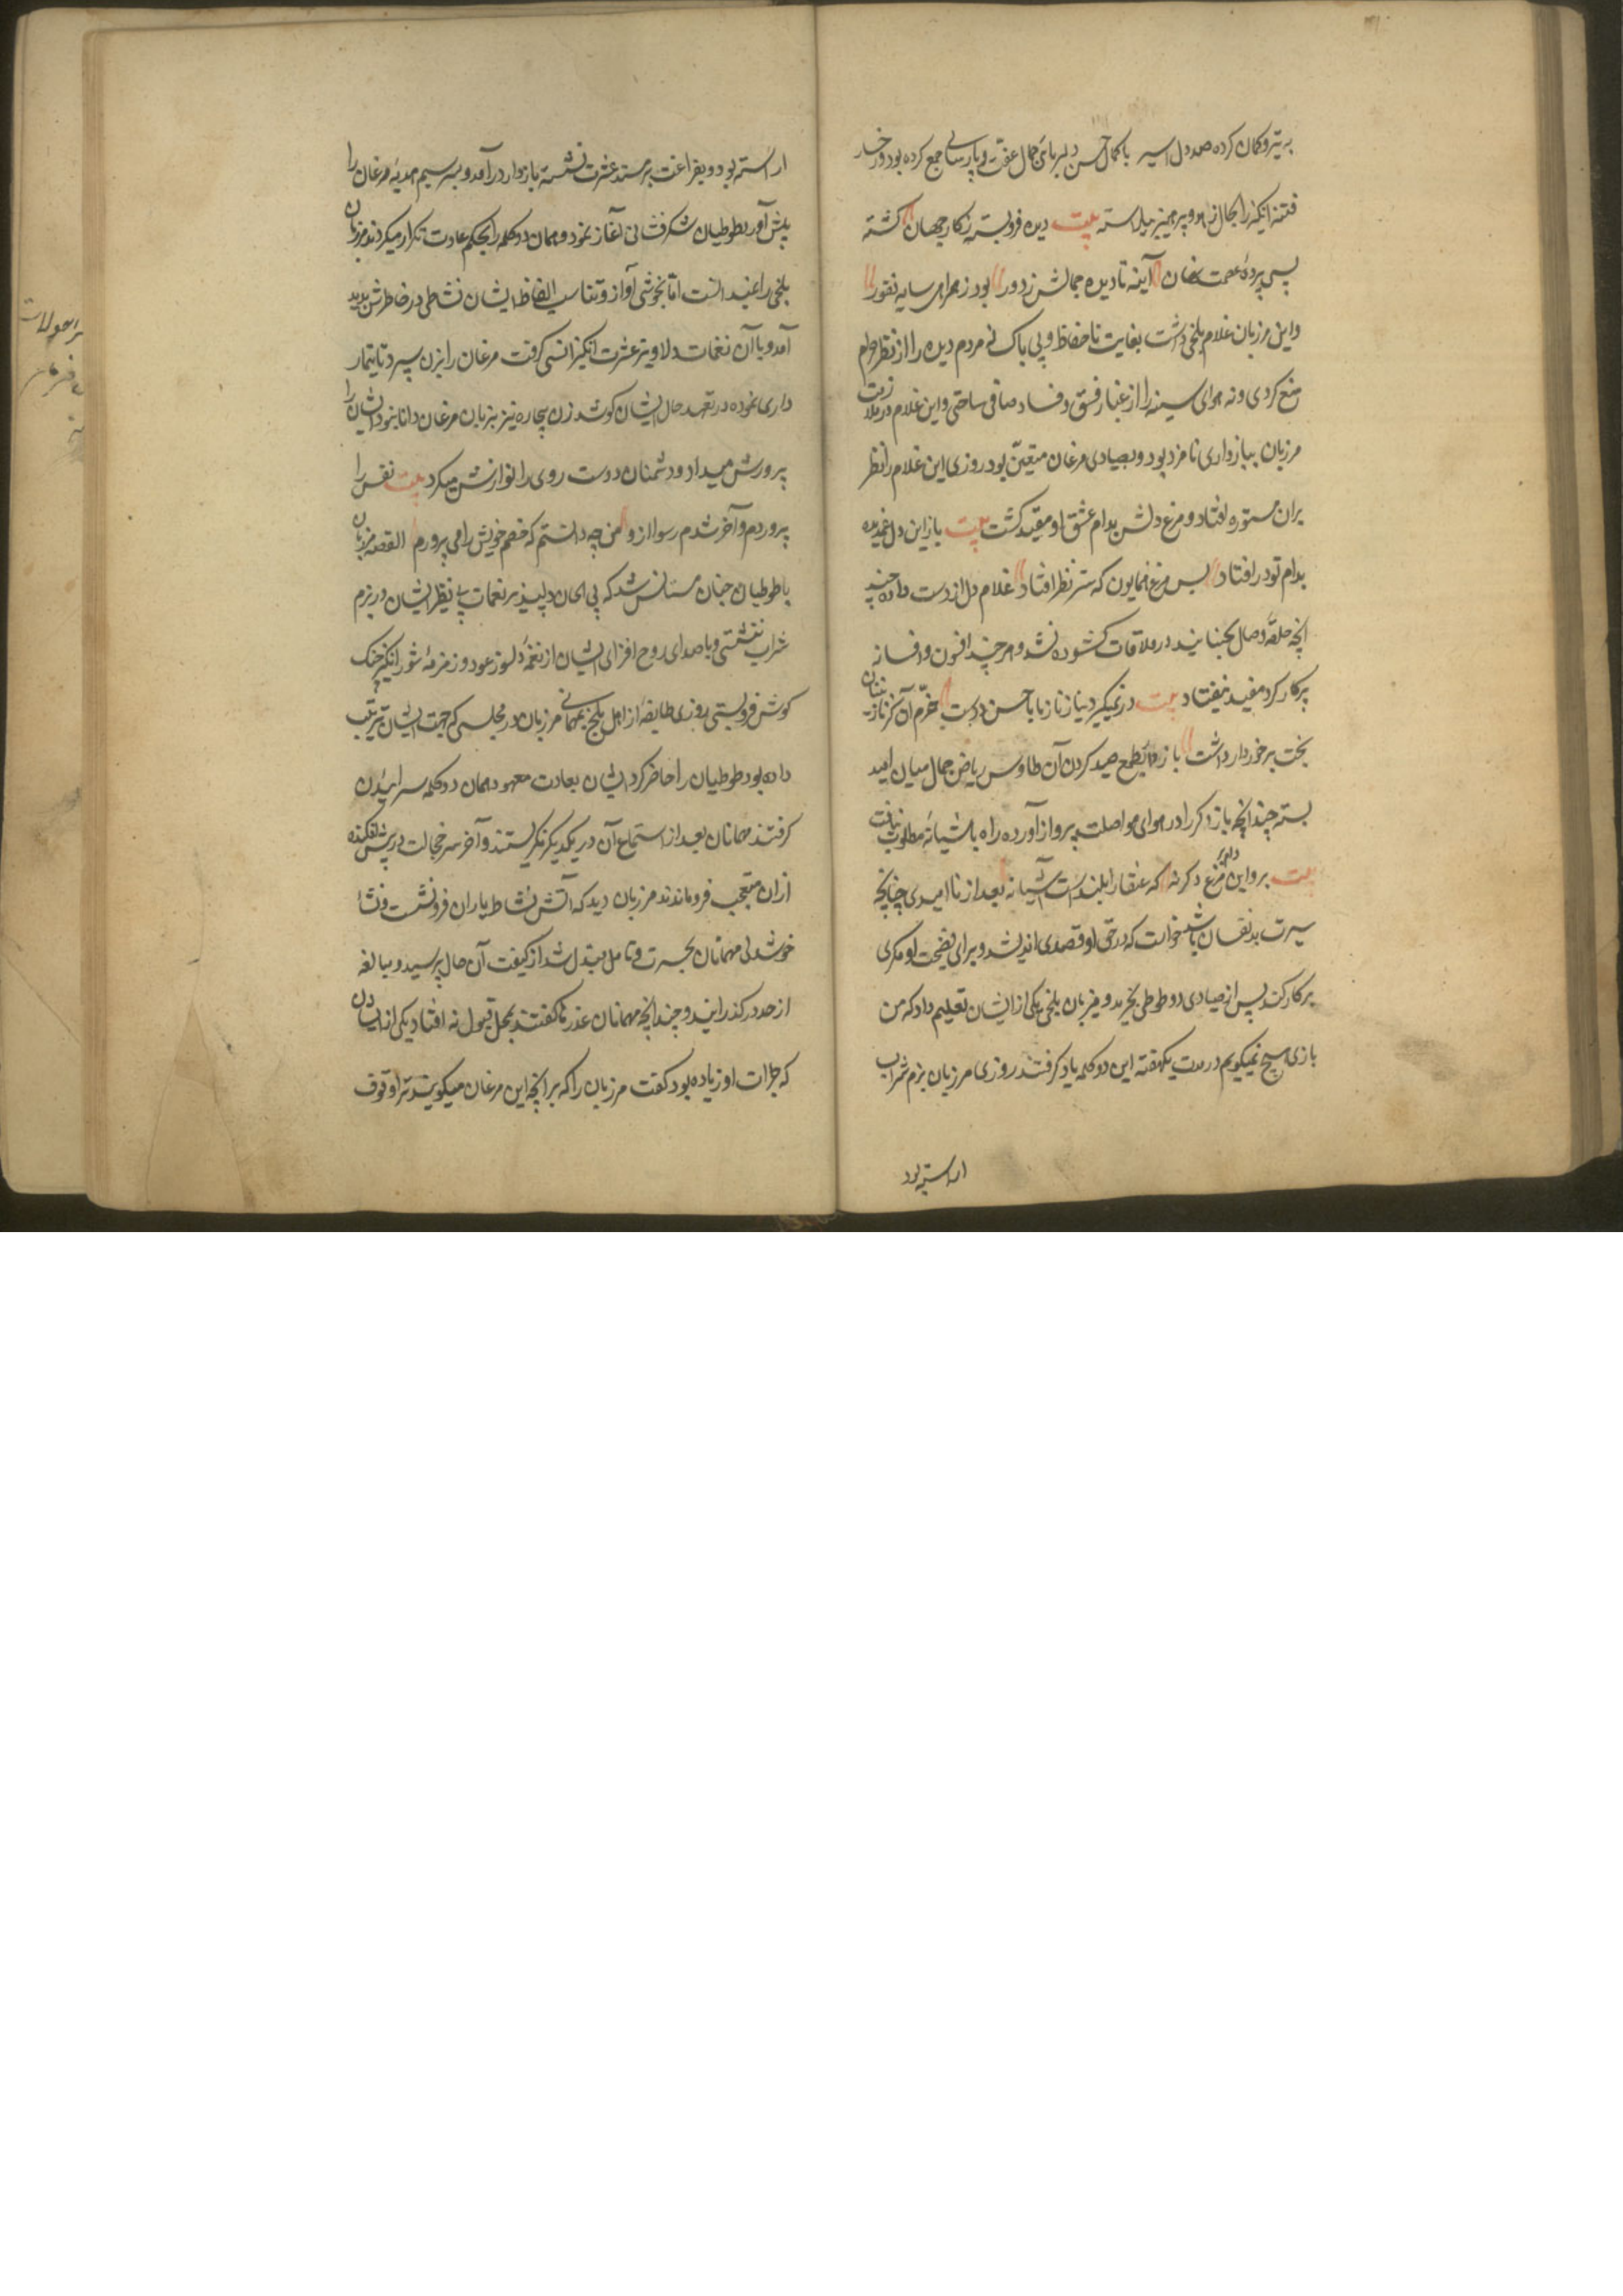 به تیر و کمان کرده صد دل اسیر با کمال حسن دلربائی جمال عفت و پارسایی جمع کرده بود و رخسار
فتنه انگیز را بخال زهد و پرهیز بیاراسته بیت دیده فروبسته ز کار جهان کشته
پس پردهٔ عصمت نهان آینه نادیده جمالش ز دور بود ز همراهی سایه نفور
و این مرزبان غلام بلخی داشت بغایت ناحفاظ و بی باک نه مردم دیده را از نظر حرام
منع کردی و نه هوای سینه را از غبار فسق و فساد صافی ساختی و این غلام در ملازمت
مرزبان ببازداری نامزد بود و بصیادی مرغان متعین بود روزی این غلام را نظر
بران مستوره افتاد و مرغ دلش بدام عشق او مقید کشت بیت باز این دل غمدیده
بدام تو در افتاد بس مرغ همایون که بتیر نظر افتاد غلام دل از دست داده چند
انچه حلقهٔ وصال بجنبانید در ملاقات کشوده نشد و هر چند افسون و افسانه
پرکار کرد مفید نیفتاد بیت در نمیکیرد نیاز ناز ما با حسن دوست خرم آن کز نازنینان
بخت برخوردار داشت بازدار بطمع صید کردن آن طاوس ریاض جمال میان امید
بسته چند انچه باز فکر را در هوای مواصلت بپرواز آورده راه باشیانهٔ مطلوب نیافت
بیت برو این دام بر مرغ دکر نه که عنقا را بلند است آشیانه بعد از ناامیدی چنانچه
سیرت بد نفسان باشد خواست که در حق او قصدی اندیشد و برای فضیحت او مکری
بر کار کند پس از صیادی دو طوطی بخرید و بزبان بلخی یکی از ایشان تعلیم داد که من
باری هیچ نمیکویم در مدت یکهفته این دو کلمه یاد کرفتند روزی مرزبان بزم شراب
اراسته بود
اراسته بود و بفراغت بر مسند عشرت نشسته بازدار درآمد و برسم هدیه مرغان را
پیش آورد طوطیان شکرفشانی آغاز نمود و همان دو کلمه را بحکم عادت تکرار میکردند مرزبان
بلخی را نمیدانست اما بخوشی آواز و تناسب الفاظ ایشان نشاطی در خاطرش پدید
آمد و با آن نغمات دلاویز عشرت انکیز انسی کرفت مرغان را بزن سپرد تا تیمار
داری نموده در تعهد حال ایشان کوشد زن بیچاره نیز بزبان مرغان دانا نبود ایشان را
پرورش میداد و دشمنان دوست روی را نوازش میکرد بیت نفس را
پروردم و آخر شدم رسوا از و من چه دانستم که خصم خویش را می پرورم القصه مرزبان
با طوطیان چنان مستانس شد که بی الحان دلپذیر نغمات بی نظیر ایشان در بزم
شراب ننشستی و با صدای روح افزای ایشان از نغمهٔ دلسوز عود و زمزمهٔ شورانکیز چنک
کوش فروبستی روزی طایفهٔ از اهل بلخ بمهمانی مرزبان در مجلسی که جهت ایشان ترتیب
داده بود طوطیان را حاضر کرد ایشان بعادت معهود همان دو کلمه سراییدن
کرفتند مهمانان بعد از استماع آن در یکدیکر نکریستند و آخر سر خجالت در پیش افکنده
ازان متعجب فرو ماندند مرزبان دید که آتش نشاط یاران فرو نشست و نشا
خوشدلی مهمانان بحیرت و تامل مبدل شد از کیفیت آن حال پرسید و مبالغه
از حد در کذرانید و چند انچه مهمانان عذرها کفتند بمحل قبول نه افتاد یکی از ایشان
که جرات او زیاده بود کفت مرزبان را که بر انچه این مرغان میکویند ترا وقوف